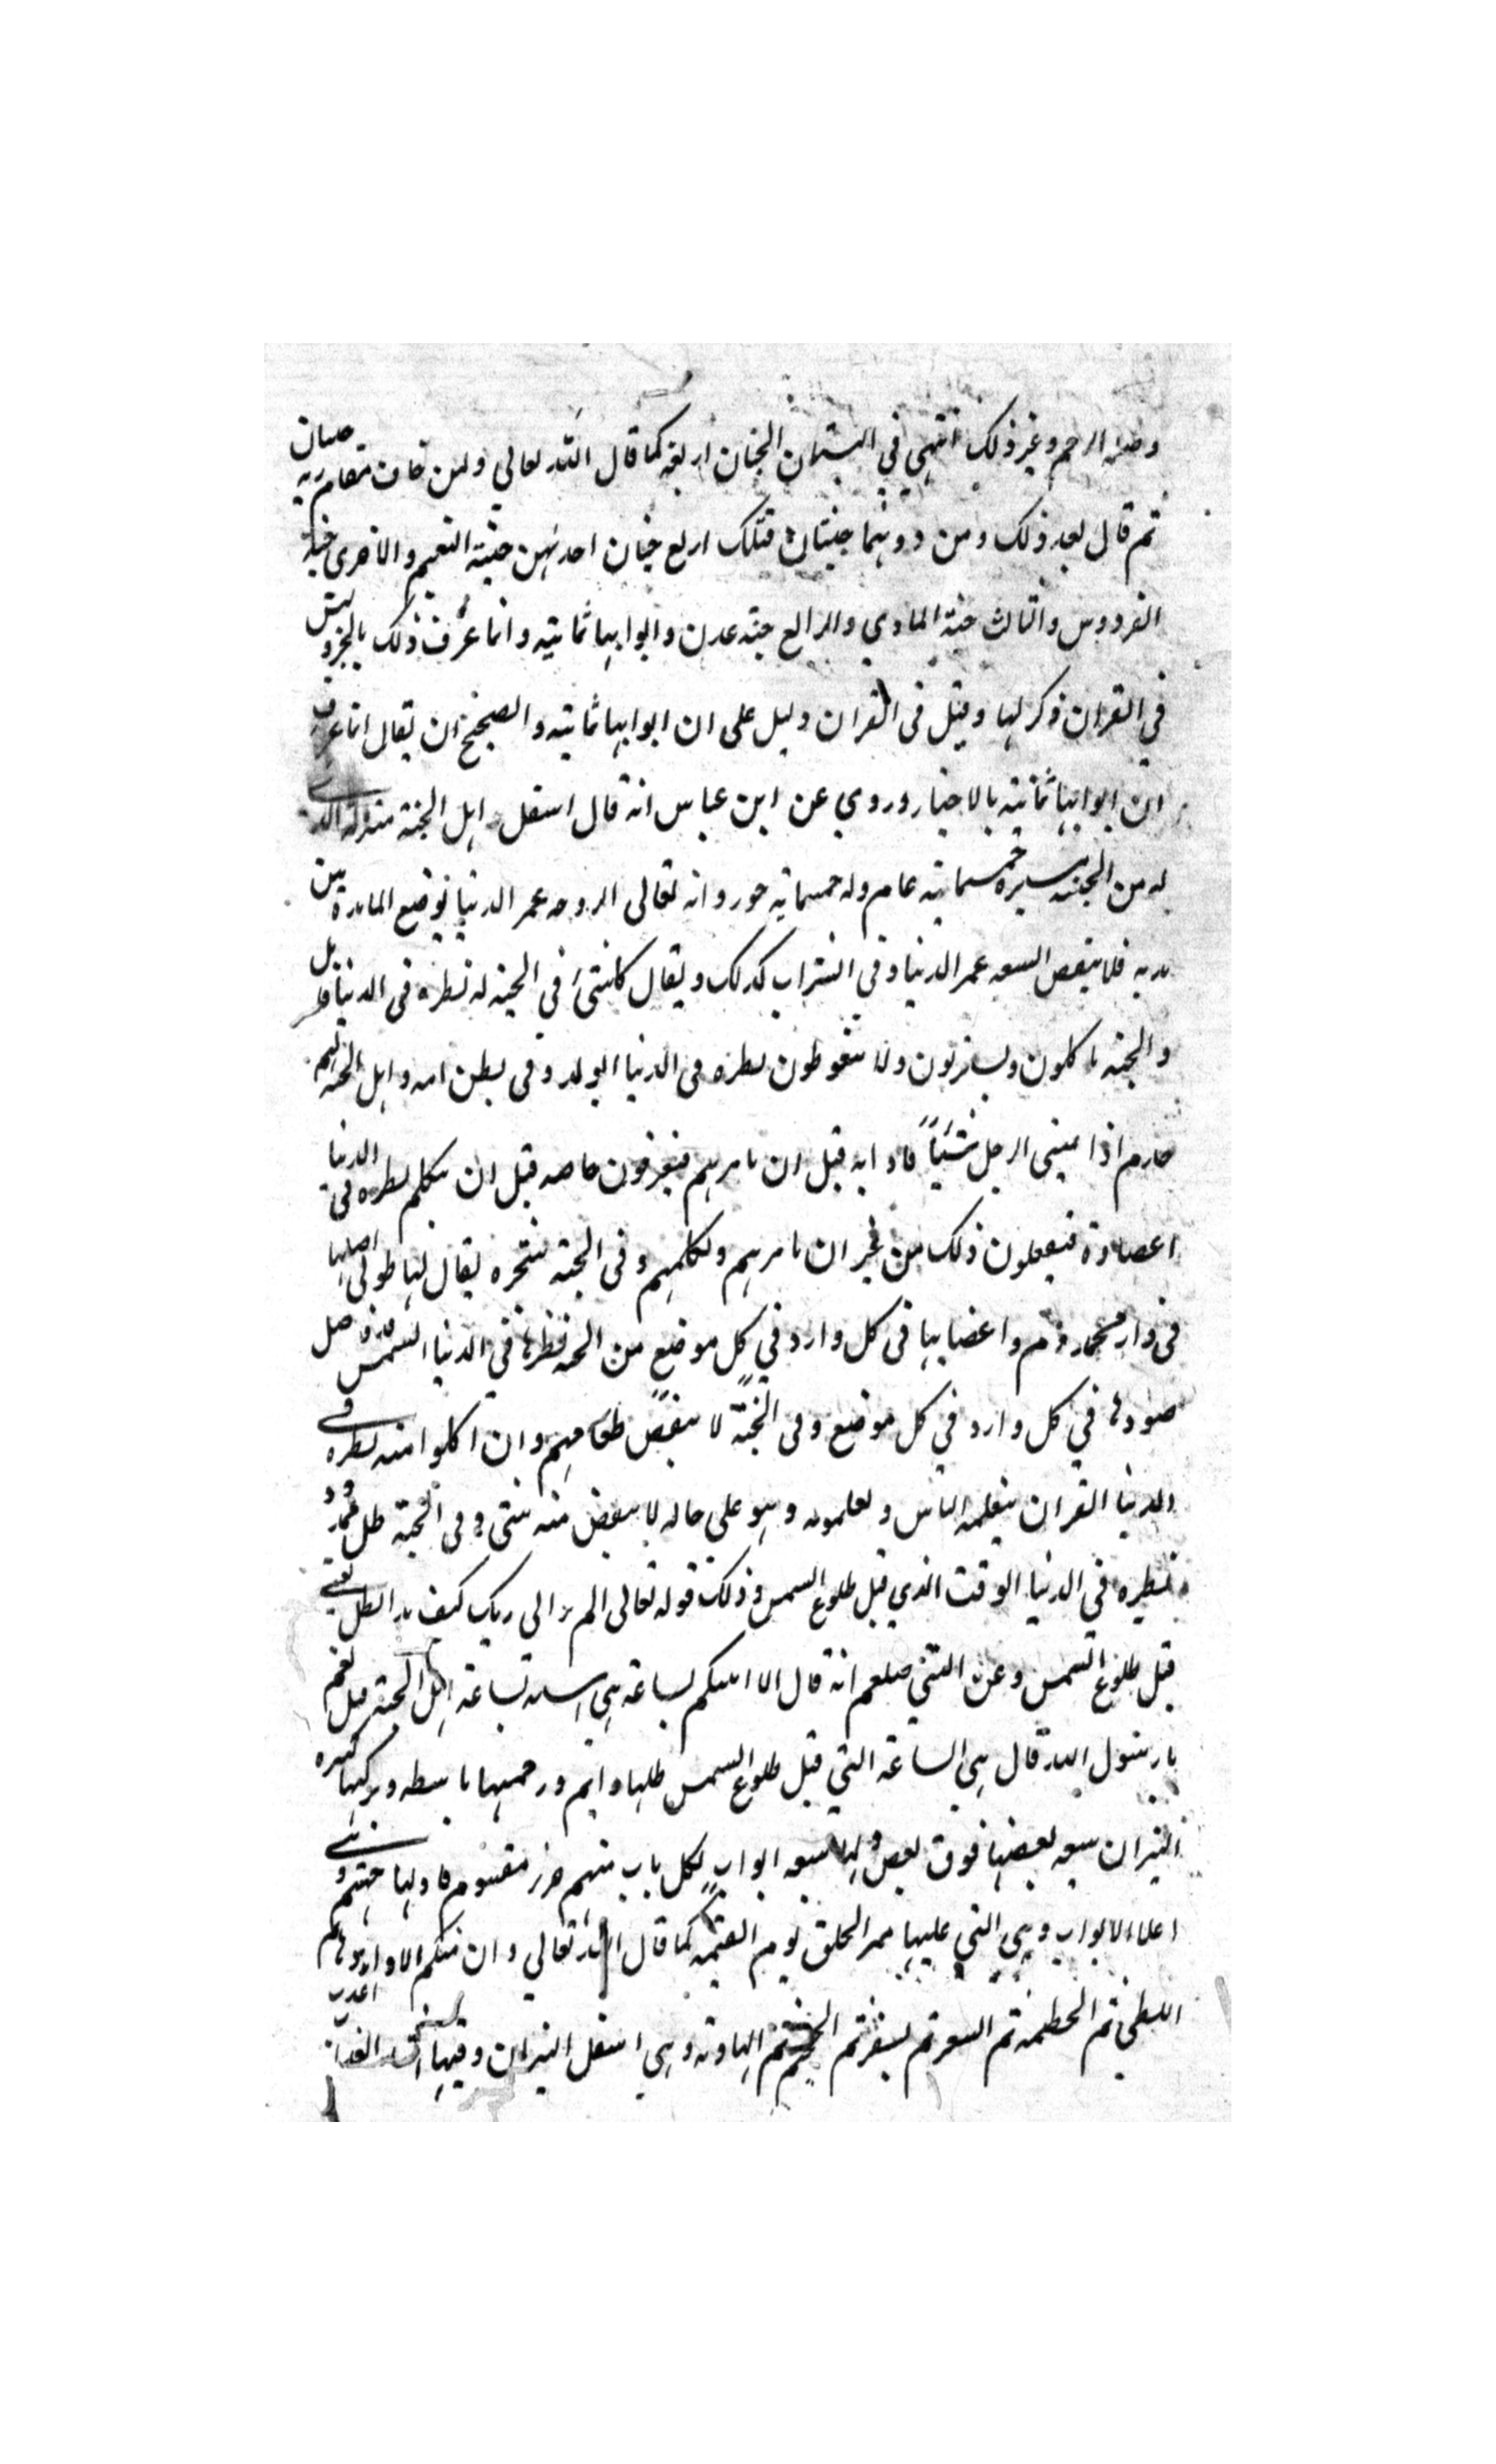 وصلة الرحم وغير ذلك انتهى في البستان الجنان اربعة كما قال الله تعالى ولمن خاف مقام ربه جنتان
ثم قال بعد ذلك ومن دونهما جنتان فتلك اربع جنان احدىهن جنة النعيم والاخرى جنة
الفردوس والثالث جنة الماوي والرابع جنة عدن وابوابها ثمانية وانما عرف ذلك بالخبر وليس
في القران ذكر لها وقيل في القران دليل على ان ابوابها ثمانية والصحيح ان يقال انما عرف
ان ابوابها ثمانية بالاخبار وروي عن ابن عباس انه قال اسفل اهل الجنة منزلة الذي
له من الجنة مسيرة خمسمائة عام وله خمسمائة حور وانه تعالى الزوجه عمر الدنيا توضع المائدة بين
يديه فلا ينقص السبعه عمر الدنيا وفي الشراب كذلك ويقال كل شيء في الجنة له نظره في الدنيا قيل
والجنة ياكلون ويشربون ولا يتغوطون نظره في الدنيا الولد في بطن امه واهل الجنة لهم
خادم اذا تمنى الرجل شيئاً فاذا به قبل ان يامرهم فيعرفون حاجته قبل ان يتكلم نظره في الدنيا
اعضاوة فيفعلون ذلك من غير ان يامرهم ولكلمهم وفي الجنة شجره يقال لها طوبى اصلها
في دار محمد وم واغصانها في كل دار وفي كل موضع من الجنة نظرها في الدنيا الشمس اصل
ضودها في كل دار وفي كل موضع وفي الجنّة لا ينقص طعامهم وان اكلوا منه نظره في
الدنيا القران يتعلمه الناس ويعلمونه وهو على حاله لا ينقص منه شي وفي الجنة ظل ممدود
نظيره في الدنيا الوقت الذي قبل طلوع الشمس وذلك قوله تعالى الم تر الى ربك كيف مد الظل يعني
قبل طلوع الشمس وعن النبي صلعم انه قال الا انبئكم بساعة هي اشبه بساعة اهل الجنة قيل نعم
يا رسول الله قال هي الساعة التي قبل طلوع الشمس ظلها دايم ورحمتها باسطه وبركتها كثيره
النيران سبعه بعضها فوق بعض ولها سبعه ابواب لكل باب منهم جزء مقسوم فاولها جهنم وهي
اعلا الابواب وهي التي عليها ممر الخلق يوم القيمة كما قال الله تعالى وان منكم الا واردها ثم
اللظى ثم الحطمه ثم السعير ثم سقر ثم الجحيم ثم الهاوية وهي اسفل النيران وفيها العذاب